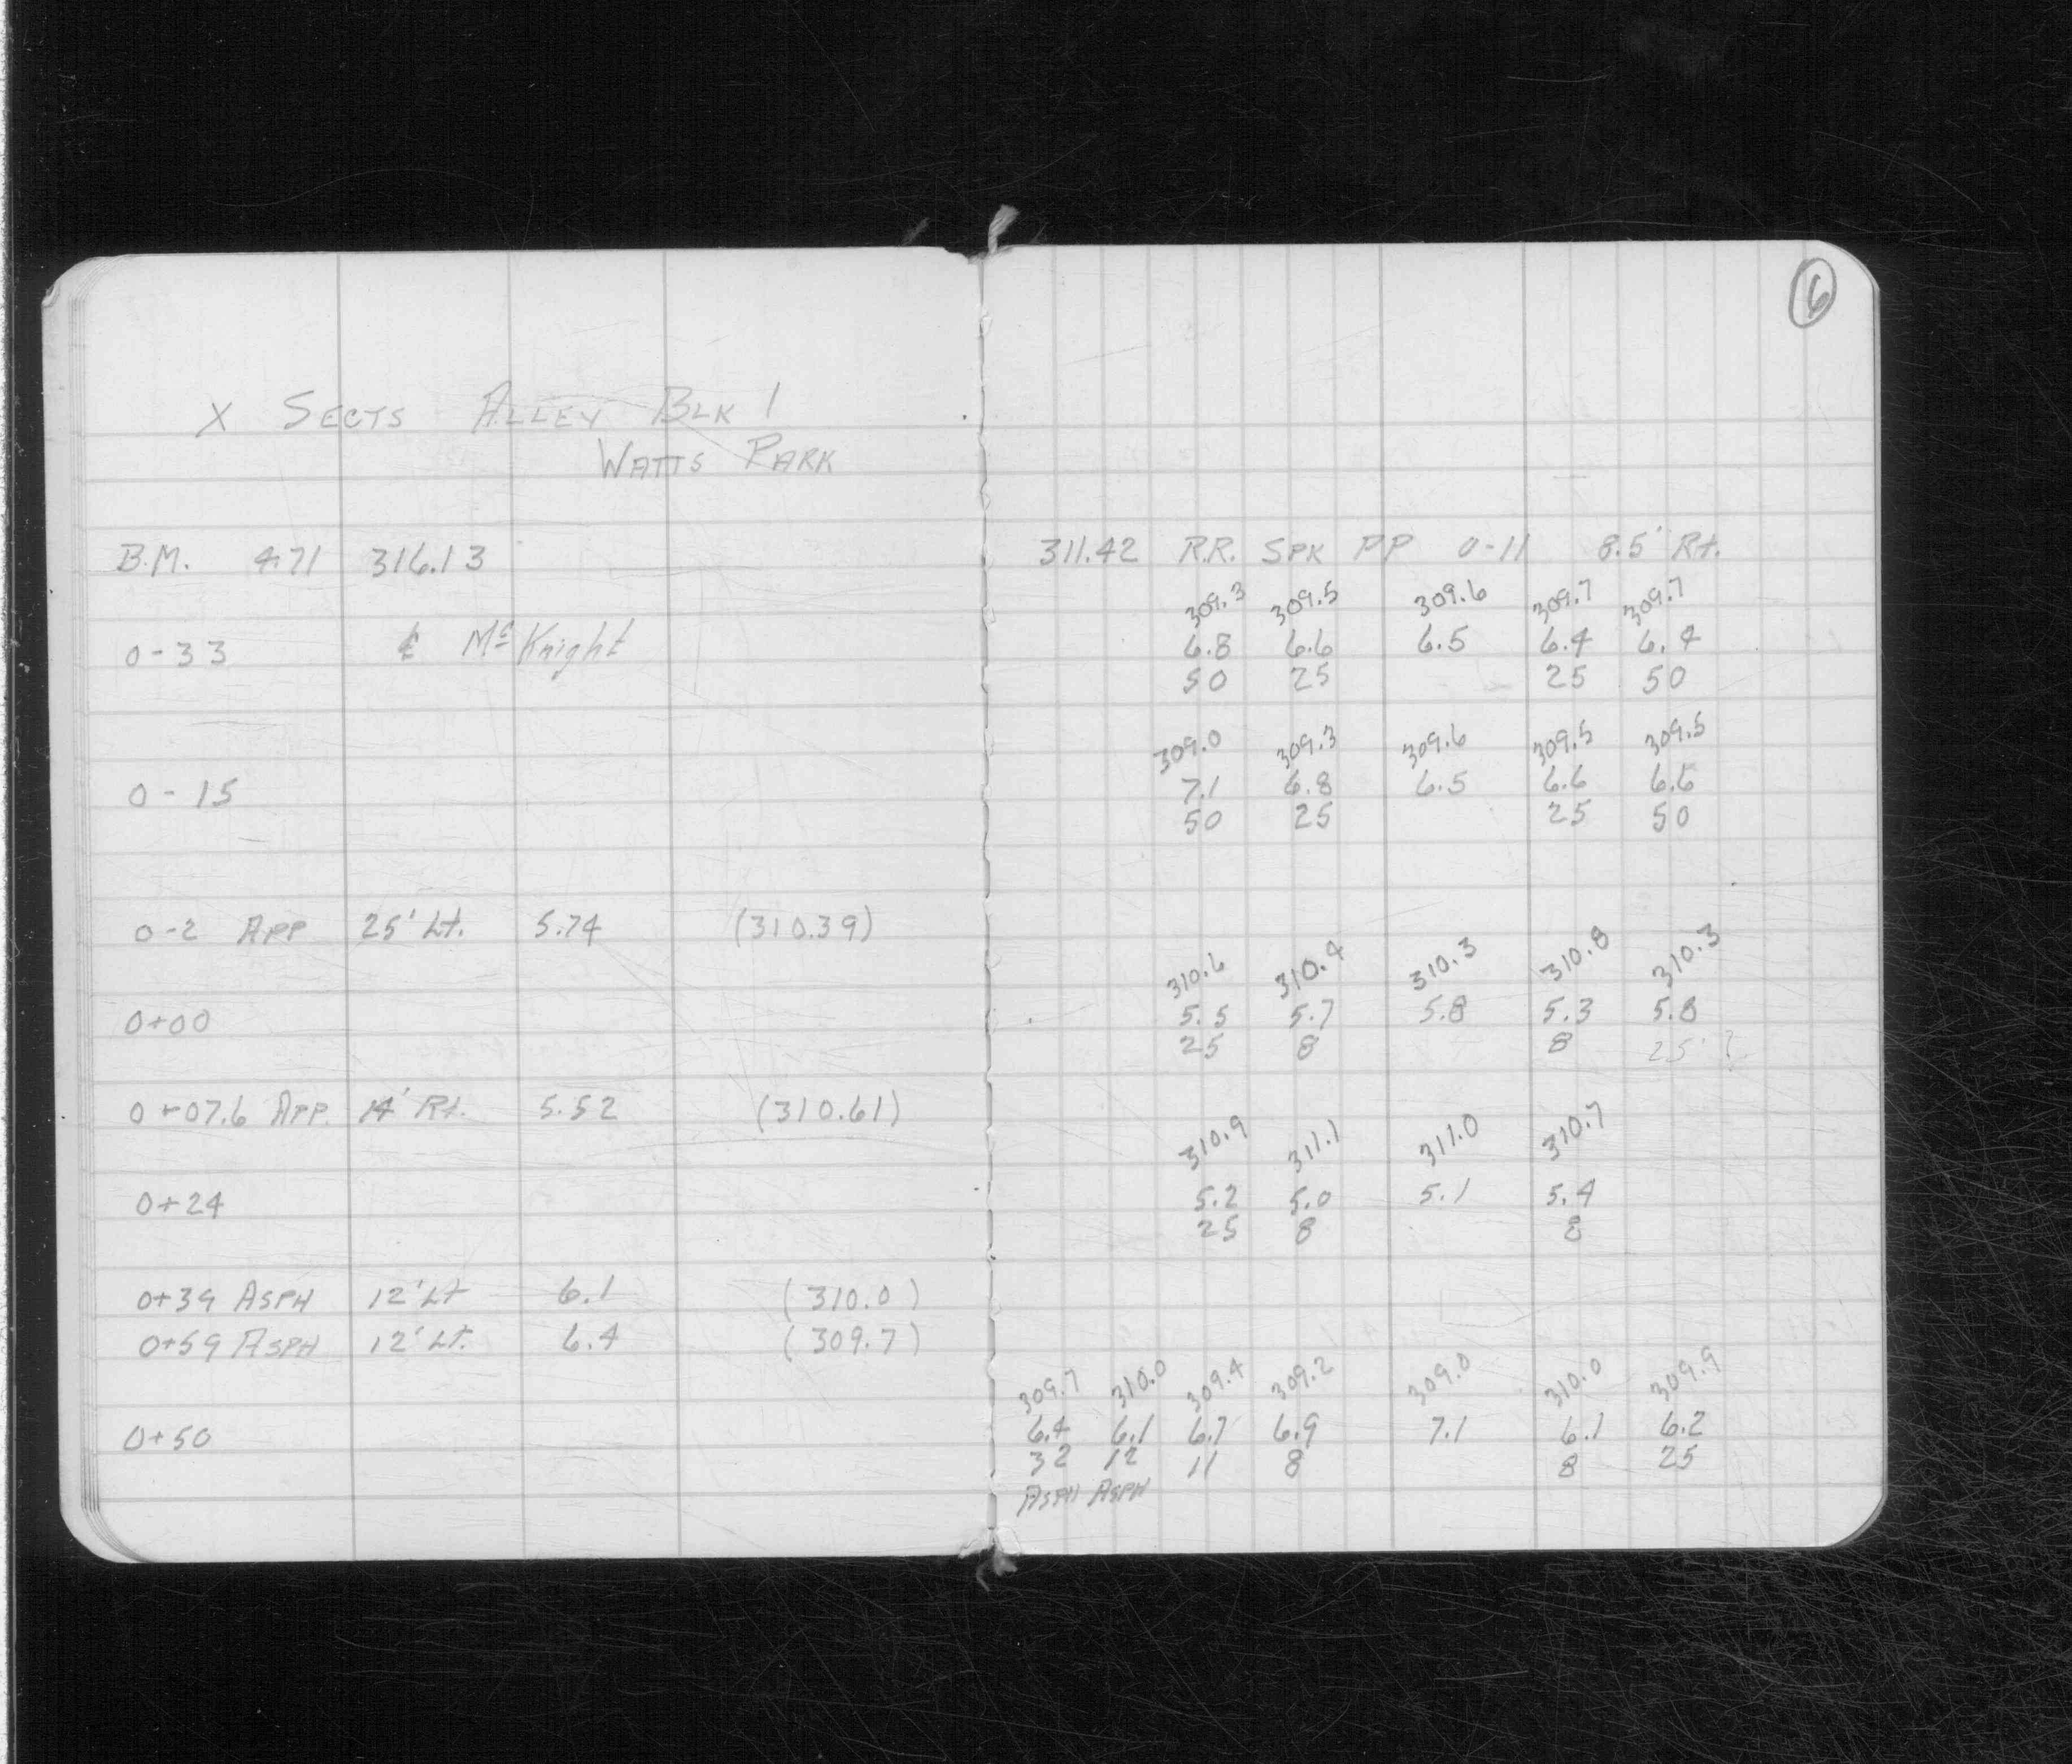 6
X SECTS ALLEY BLK 1
WATTS PARK
B.M. 4.71 316.13
0-33 ℄ McKnight
0-15
0-2 APP 25' Lt. 5.74 (310.39)
0+00
0+07.6 APP. 14' Rt. 5.52 (310.61)
0+24
0+39 ASPH 12' Lt 6.1 (310.0)
0+59 ASPH 12' Lt. 6.4 (309.7)
0+50
311.42 R.R. SPK PP 0-11 8.5' Rt.
309.3 309.5 309.6 309.7 309.7
6.8 6.6 6.5 6.4 6.4
50 25 25 50
309.0 309.3 309.6 309.5 309.5
7.1 6.8 6.5 6.6 6.6
50 25 25 50
310.6 310.4 310.3 310.8 310.3
5.5 5.7 5.8 5.3 5.8
25 8 8 25' ?
310.9 311.1 311.0 310.7
5.2 5.0 5.1 5.4
25 8 8
309.7 310.0 309.4 309.2 309.0 310.0 309.9
6.4 6.1 6.7 6.9 7.1 6.1 6.2
32 12 11 8 8 25
ASPH ASPH